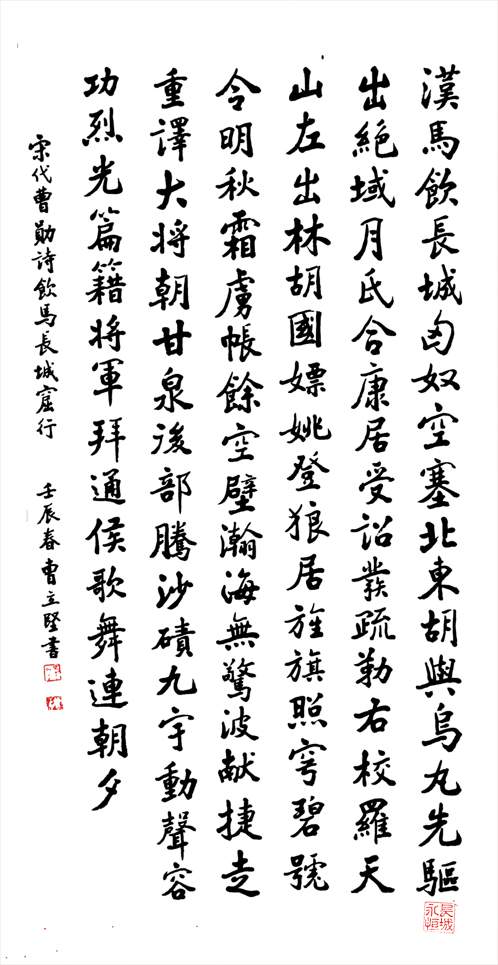 漢馬飲長城匈奴空塞北東胡與烏丸先驅
出絕域月氏合康居受詔發疏勒右校羅天
山左出林胡國嫖姚登狼居旌旗照穹碧號
令明秋霜虜帳餘空壁瀚海無驚波献捷走
重譯大将朝甘泉後部騰沙磧九宇動聲容
功烈光篇籍将軍拜通侯歌舞連朝夕
宋代曹勛詩飲馬長城窟行 壬辰春曹立堅書